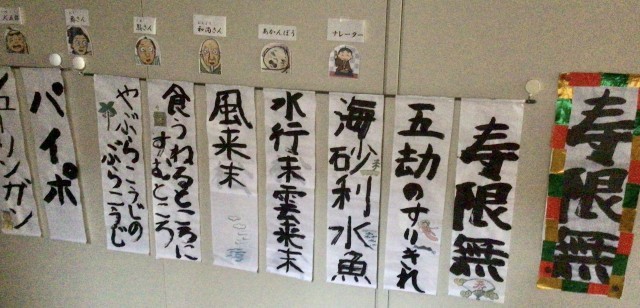 寿限無
寿限無
五劫のすりきれ
海砂利水魚
水行末雲来末
風来末
食うねるところに
すむところ
やぶらこうじの
ぶらこうじ
パイポ
シューリンガン
ナレーター
あかんぼう
和尚さん